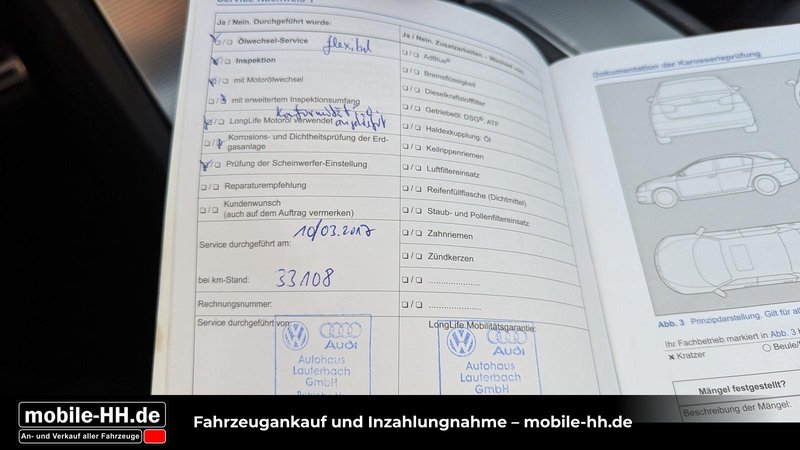 Ja / Nein. Durchgeführt wurde:
Ölwechsel-Service flexibel
Inspektion
mit Motorölwechsel
mit erweitertem Inspektionsumfang
LongLife Motoröl verwendet
Korrosions- und Dichtheitsprüfung der Erd-
gasanlage
Prüfung der Scheinwerfer-Einstellung
Reparaturempfehlung
Kundenwunsch
(auch auf dem Auftrag vermerken)
Service durchgeführt am: 10/03.2017
bei km-Stand: 33108
Rechnungsnummer:
Service durchgeführt von:
Audi
Autohaus
Lauterbach
GmbH
Ja / Nein. Zusatzarbeiten – Wechsel von:
AdBlue®
Bremsflüssigkeit
Dieselkraftstofffilter
Getriebeöl: DSG®, ATF
Haldexkupplung: Öl
Keilrippenriemen
Luftfiltereinsatz
Reifenfüllflasche (Dichtmittel)
Staub- und Pollenfiltereinsatz
Zahnriemen
Zündkerzen
LongLife Mobilitätsgarantie:
Audi
Autohaus
Lauterbach
GmbH
Dokumentation der Karosserieprüfung
Abb. 3 Prinzipdarstellung. Gilt für
Ihr Fachbetrieb markiert in Abb. 3
× Kratzer
Mängel festgestellt?
Beschreibung der Mängel:
mobile-HH.de
An- und Verkauf aller Fahrzeuge
Fahrzeugankauf und Inzahlungnahme – mobile-hh.de